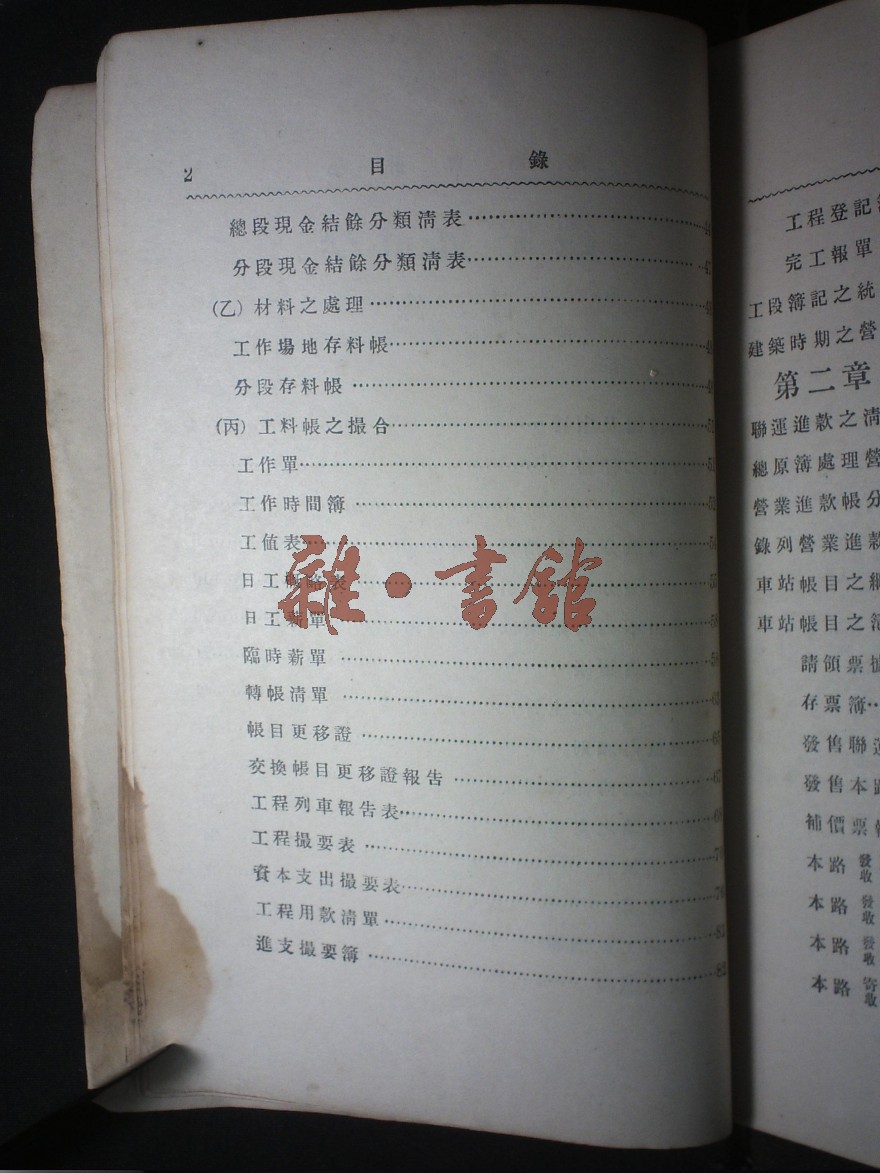 2 目 錄
總段現金結餘分類淸表
分段現金結餘分類淸表
(乙) 材料之處理
工作場地存料帳
分段存料帳
(丙) 工料帳之撮合
工作單
工作時間簿
工値表
日工
日工薪單
臨時薪單
轉帳淸單
帳目更移證
交換帳目更移證報告
工程列車報告表
工程撮要表
資本支出撮要表
工程用款淸單
進支撮要簿
雜·書館
工程登記簿
完工報單
工段簿記之統
建築時期之營
第二章
聯運進款之淸
總原簿處理營
營業進款帳分
錄列營業進款
車站帳目之
車站帳目之
請領票
存票簿
發售聯運
發售本路
補價票
本路 發收
本路 發收
本路 發收
本路 寄收